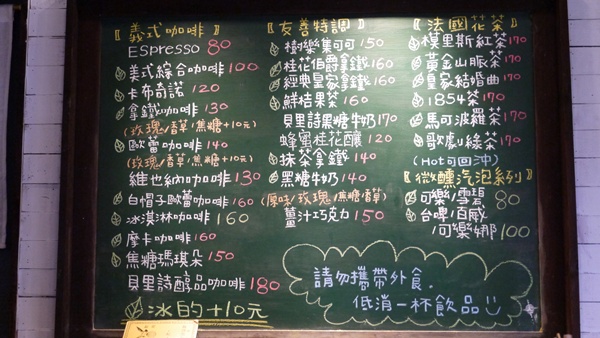 〖義式咖啡〗
Espresso 80
美式綜合咖啡100
卡布奇諾 120
拿鐵咖啡 130
(玫瑰/香草/焦糖+10元)
歐蕾咖啡 140
(玫瑰/香草/焦糖+10元)
維也納咖啡 130
白帽子歐蕾咖啡160
冰淇淋咖啡 160
摩卡咖啡 160
焦糖瑪琪朵 150
貝里詩醇品咖啡 180
冰的+10元
〖友善特調〗
樹樂集可可 150
桂花伯爵拿鐵160
經典皇家拿鐵160
鮮桔果茶 160
貝里詩黑糖牛奶170
蜂蜜桂花釀 120
抹茶拿鐵 140
黑糖牛奶 140
(原味/玫瑰/焦糖香草)
薑汁巧克力 150
〖法國花茶〗
模里斯紅茶170
黃金山脈茶170
皇家結婚曲170
1854茶170
馬可波羅茶170
歌劇綠茶170
(Hot可回沖)
〖微醺汽泡系列〗
可樂/雪碧 80
台啤/百威
/可樂娜100
請勿攜帶外食.
低消一杯飲品